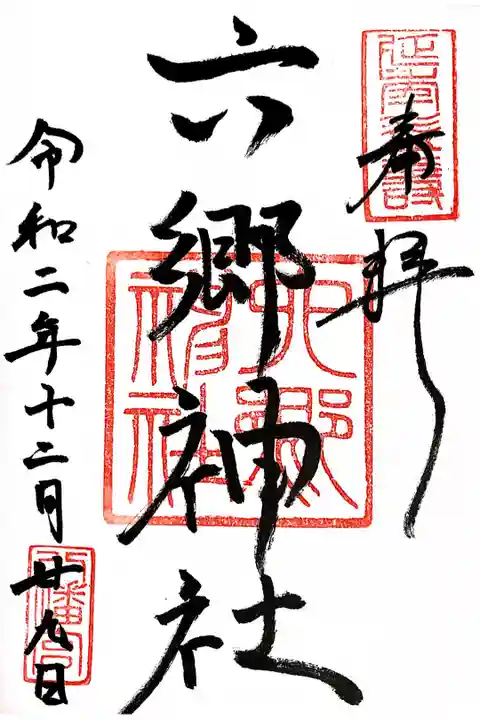 奉拝
六郷神社
令和二年十二月廿九日
六郷神社
八幡宮